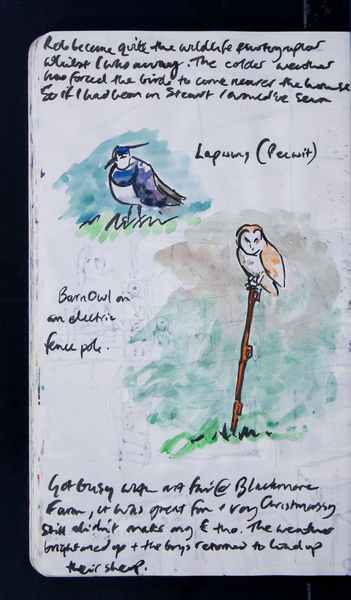 Rob became quite the wildlife photographer
whilst I was away. The colder weather
has forced the birds to come nearer the house
So if I had been in Steart I would've seen
Lapwing (Peewit)
Barn Owl on
an electric
fence pole.
Got busy with art fair @ Blackmore
Farm, it was great fun + very Christmassy
Still didn't make any £ tho. The weather
brightened up + the boys returned to load up
their sheep.